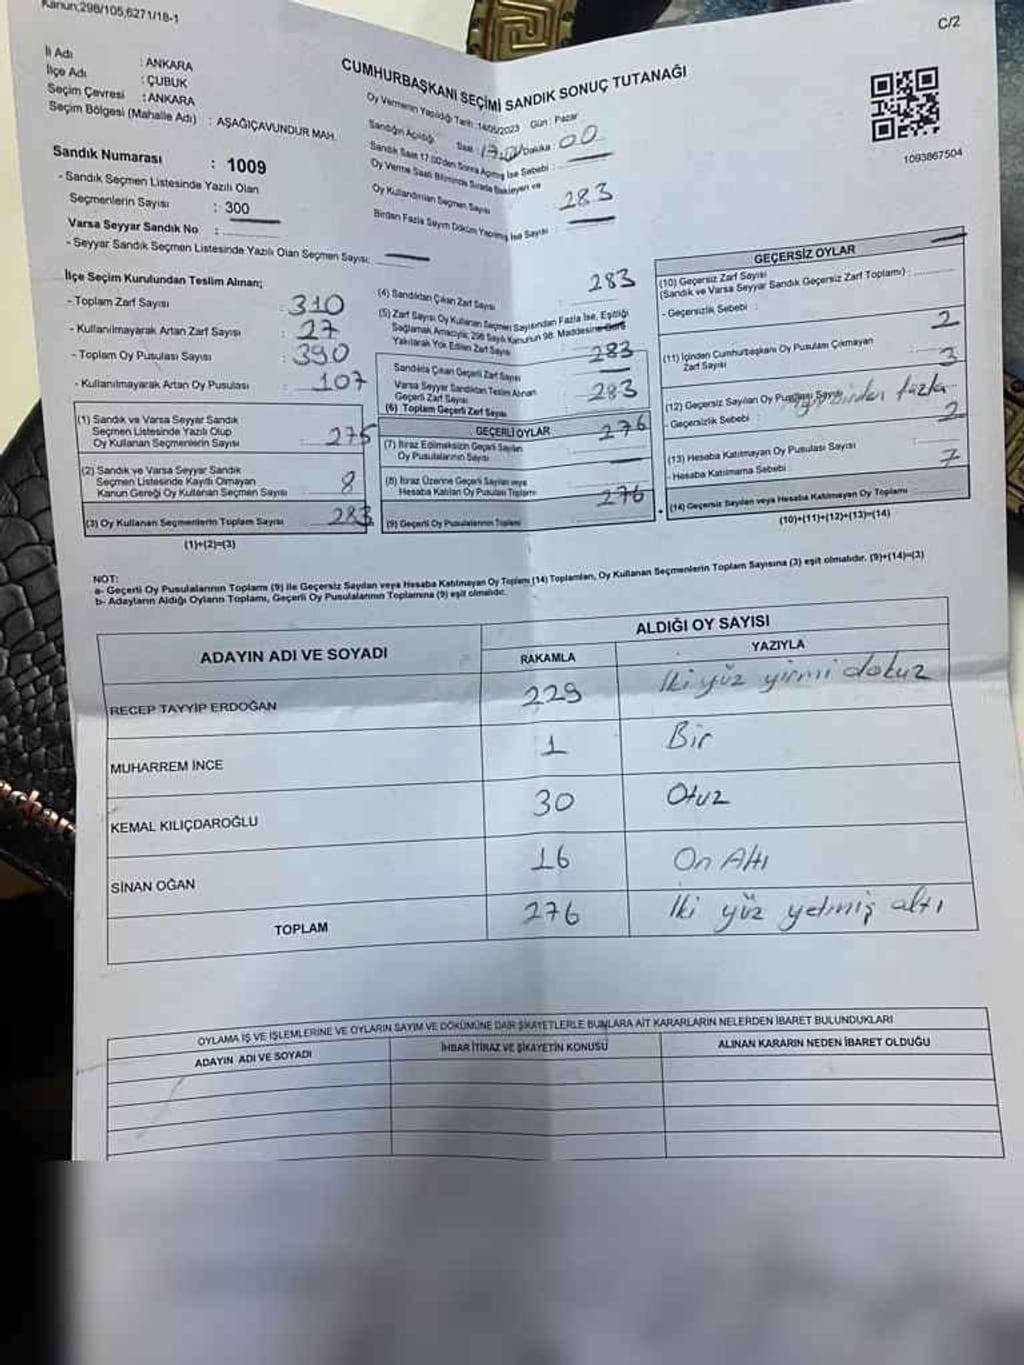 Kanun;298/105,6271/18-1
C/2
İl Adı : ANKARA
İlçe Adı : ÇUBUK
Seçim Çevresi : ANKARA
Seçim Bölgesi (Mahalle Adı) : AŞAĞIÇAVUNDUR MAH.
Sandık Numarası : 1009
- Sandık Seçmen Listesinde Yazılı Olan
Seçmenlerin Sayısı : 300
Varsa Seyyar Sandık No :
- Seyyar Sandık Seçmen Listesinde Yazılı Olan Seçmen Sayısı:
CUMHURBAŞKANI SEÇİMİ SANDIK SONUÇ TUTANAĞI
Oy Vermenin Yapıldığı Tarih :14/05/2023 Gün : Pazar
Sandığın Açıldığı Saat : Dakika : 00
Sandık Saat 17:00'den Sonra Açılmış İse Sebebi :
Oy Verme Saati Bitiminde Sırada Bekleyen ve
Oy Kullandırılan Seçmen Sayısı 283
Birden Fazla Sayım Döküm Yapılmış İse Sayısı :
1093867504
İlçe Seçim Kurulundan Teslim Alınan;
- Toplam Zarf Sayısı : 310
- Kullanılmayarak Artan Zarf Sayısı : 27
- Toplam Oy Pusulası Sayısı : 390
- Kullanılmayarak Artan Oy Pusulası : 107
(1) Sandık ve Varsa Seyyar Sandık
Seçmen Listesinde Yazılı Olup
Oy Kullanan Seçmenlerin Sayısı : 275
(2) Sandık ve Varsa Seyyar Sandık
Seçmen Listesinde Kayıtlı Olmayan
Kanun Gereği Oy Kullanan Seçmen Sayısı : 8
(3) Oy Kullanan Seçmenlerin Toplam Sayısı : 283
(1)+(2)=(3)
(4) Sandıktan Çıkan Zarf Sayısı : 283
(5) Zarf Sayısı Oy Kullanan Seçmen Sayısından Fazla İse, Eşitliği
Sağlamak Amacıyla, 298 Sayılı Kanunun 98. Maddesine Göre
Yakılarak Yok Edilen Zarf Sayısı
Sandıkta Çıkan Geçerli Zarf Sayısı : 283
Varsa Seyyar Sandıktan Teslim Alınan
Geçerli Zarf Sayısı
(6) Toplam Geçerli Zarf Sayısı : 283
GEÇERLİ OYLAR
(7) İtiraz Edilmeksizin Geçerli Sayılan
Oy Pusulalarının Sayısı : 276
(8) İtiraz Üzerine Geçerli Sayılan veya
Hesaba Katılan Oy Pusulası Toplamı
(9) Geçerli Oy Pusulalarının Toplamı : 276
GEÇERSİZ OYLAR
(10) Geçersiz Zarf Sayısı
(Sandık ve Varsa Seyyar Sandık Geçersiz Zarf Toplamı) :
- Geçersizlik Sebebi :
(11) İçinden Cumhurbaşkanı Oy Pusulası Çıkmayan
Zarf Sayısı 2
(12) Geçersiz Sayılan Oy Pusulası Sayısı 3
- Geçersizlik Sebebi : Birden fazla
(13) Hesaba Katılmayan Oy Pusulası Sayısı : 2
- Hesaba Katılmama Sebebi :
(14) Geçersiz Sayılan veya Hesaba Katılmayan Oy Toplamı 7
(10)+(11)+(12)+(13)=(14)
NOT:
a- Geçerli Oy Pusulalarının Toplamı (9) ile Geçersiz Sayılan veya Hesaba Katılmayan Oy Toplam (14) Toplamları, Oy Kullanan Seçmenlerin Toplam Sayısına (3) eşit olmalıdır. (9)+(14)=(3)
b- Adayların Aldığı Oyların Toplamı, Geçerli Oy Pusulalarının Toplamına (9) eşit olmalıdır.
ADAYIN ADI VE SOYADI
ALDIĞI OY SAYISI
RAKAMLA YAZIYLA
RECEP TAYYİP ERDOĞAN 229 İki yüz yirmi dokuz
MUHARREM İNCE 1 Bir
KEMAL KILIÇDAROĞLU 30 Otuz
SİNAN OĞAN 16 On Altı
TOPLAM 276 İki yüz yetmiş altı
OYLAMA İŞ VE İŞLEMLERİNE VE OYLARIN SAYIM VE DÖKÜMÜNE DAİR ŞİKAYETLERLE BUNLARA AİT KARARLARIN NELERDEN İBARET BULUNDUKLARI
ADAYIN ADI VE SOYADI İHBAR İTİRAZ VE ŞİKAYETİN KONUSU ALINAN KARARIN NEDEN İBARET OLDUĞU